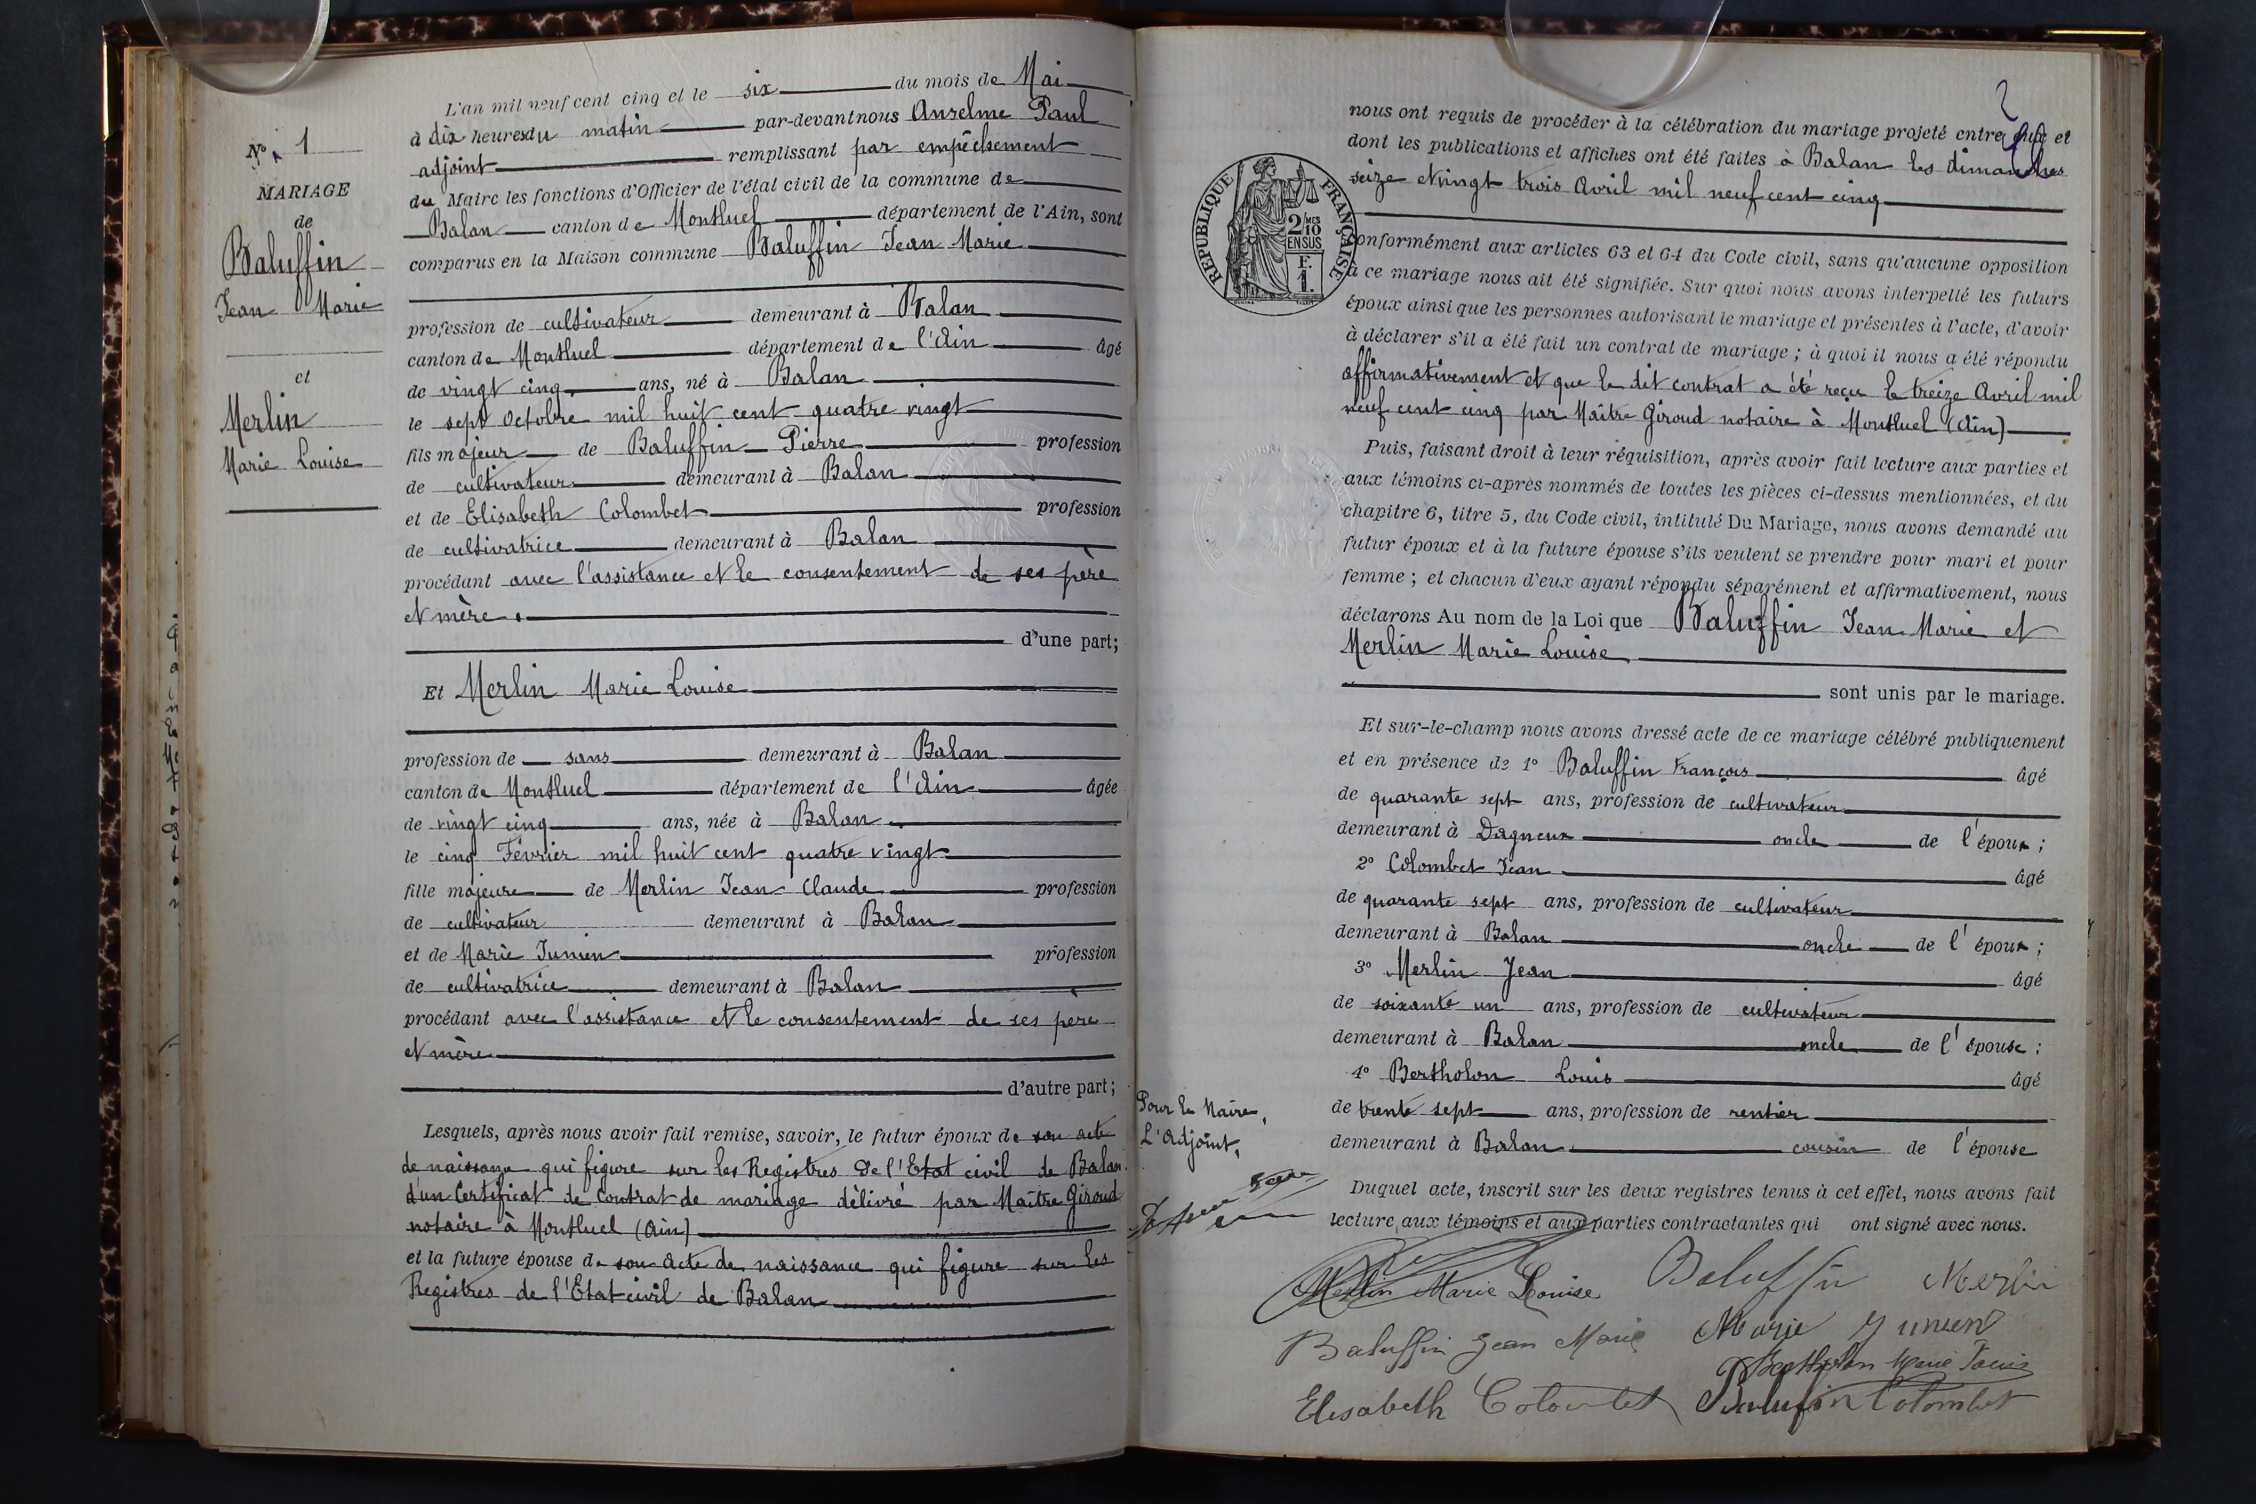 N° 1
MARIAGE
de
Baluffin
Jean Marie
et
Merlin
Marie Louise
L'an mil neuf cent cinq et le six du mois de Mai
à dix heures du matin par-devant nous Anselme Paul
adjoint remplissant par empêchement
du Maire les fonctions d'Officier de l'état civil de la commune de
Balan canton de Montluel département de l'Ain, sont
comparus en la Maison commune Baluffin Jean Marie
profession de cultivateur demeurant à Balan
canton de Montluel département de l'Ain âgé
de vingt cinq ans, né à Balan
le sept Octobre mil huit cent quatre vingt
fils majeur de Baluffin Pierre profession
de cultivateur demeurant à Balan
et de Elisabeth Colombet profession
de cultivatrice demeurant à Balan
procédant avec l'assistance et le consentement de ses père
et mère.
d'une part;
Et Merlin Marie Louise
profession de sans demeurant à Balan
canton de Montluel département de l'Ain âgée
de vingt cinq ans, née à Balan
le cinq Février mil huit cent quatre vingt
fille majeure de Merlin Jean Claude profession
de cultivateur demeurant à Balan
et de Marie Junien profession
de cultivatrice demeurant à Balan
procédant avec l'assistance et le consentement de ses père
et mère
d'autre part;
Lesquels, après nous avoir fait remise, savoir, le futur époux de son acte
de naissance qui figure sur les Registres de l'Etat civil de Balan
d'un Certificat de Contrat de mariage délivré par Maître Giroud
notaire à Montluel (Ain)
et la future épouse de son acte de naissance qui figure sur les
Registres de l'Etat civil de Balan
2
nous ont requis de procéder à la célébration du mariage projeté entre eux et
dont les publications et affiches ont été faites à Balan les dimanches
seize et vingt trois Avril mil neuf cent cinq
RÉPUBLIQUE FRANÇAISE
2/10
EN SUS
F.
1.
conformément aux articles 63 et 64 du Code civil, sans qu'aucune opposition
à ce mariage nous ait été signifiée. Sur quoi nous avons interpellé les futurs
époux ainsi que les personnes autorisant le mariage et présentes à l'acte, d'avoir
à déclarer s'il a été fait un contrat de mariage ; à quoi il nous a été répondu
affirmativement et que le dit contrat a été reçu le treize Avril mil
neuf cent cinq par Maître Giroud notaire à Montluel (Ain)
Puis, faisant droit à leur réquisition, après avoir fait lecture aux parties et
aux témoins ci-après nommés de toutes les pièces ci-dessus mentionnées, et du
chapitre 6, titre 5, du Code civil, intitulé Du Mariage, nous avons demandé au
futur époux et à la future épouse s'ils veulent se prendre pour mari et pour
femme ; et chacun d'eux ayant répondu séparément et affirmativement, nous
déclarons Au nom de la Loi que Baluffin Jean Marie et
Merlin Marie Louise
sont unis par le mariage.
Et sur-le-champ nous avons dressé acte de ce mariage célébré publiquement
et en présence de 1° Baluffin François âgé
de quarante sept ans, profession de cultivateur
demeurant à Dagneux oncle de l'époux ;
2° Colombet Jean âgé
de quarante sept ans, profession de cultivateur
demeurant à Balan oncle de l'époux ;
3° Merlin Jean âgé
de soixante un ans, profession de cultivateur
demeurant à Balan oncle de l'épouse ;
4° Bertholon Louis âgé
de trente sept ans, profession de rentier
demeurant à Balan cousin de l'épouse
Duquel acte, inscrit sur les deux registres tenus à cet effet, nous avons fait
lecture aux témoins et aux parties contractantes qui ont signé avec nous.
Pour le Maire,
L'Adjoint,
Merlin Marie Louise Baluffin Merlin
Baluffin Jean Marie Marie Junien
Bertholon Marie Louis
Elisabeth Colombet Baluffin Colombet